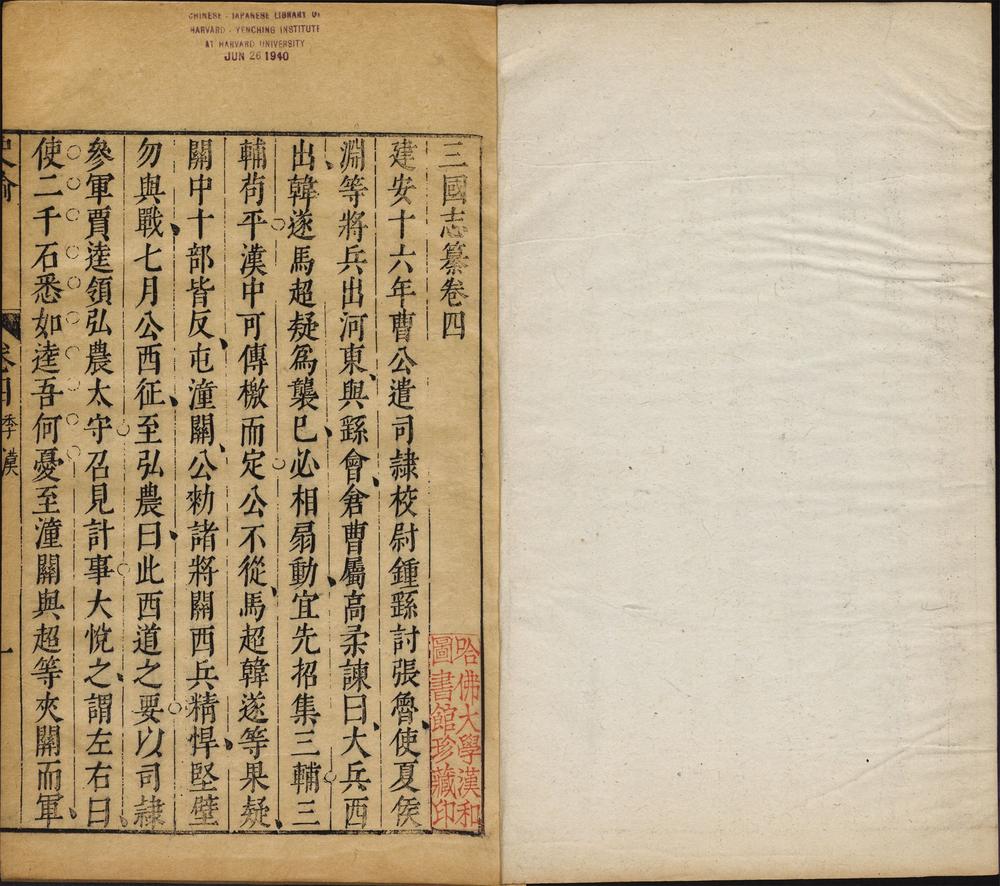 CHINESE - JAPANESE LIBRARY OF
HARVARD - YENCHING INSTITUTE
AT HARVARD UNIVERSITY
JUN 26 1940
三國志纂卷四
建安十六年曹公遣司隷校尉鍾繇討張魯使夏侯
淵等將兵出河東與繇會倉曹屬高柔諫曰大兵西
出韓遂馬超疑爲襲已必相扇動宜先招集三輔三
輔茍平漢中可傳檄而定公不從馬超韓遂等果疑
關中十部皆反屯潼關公勑諸將關西兵精悍堅壁
勿與戰七月公西征至弘農曰此西道之要以司隷
參軍賈逵領弘農太守召見計事大悅之謂左右曰
使二千石悉如逵吾何憂至潼關與超等夾關而軍
卷四
季漢
一
哈佛大學漢和
圖書館珍藏印